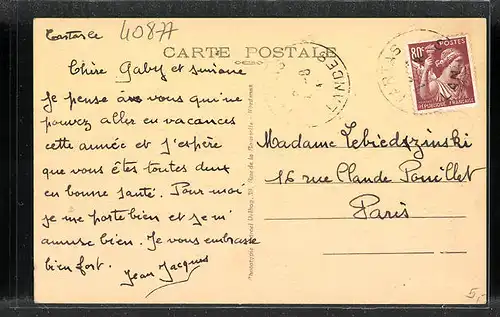 Tartas le
40877
CARTE POSTALE
Chère Gaby et simone
Je pense à vous qui ne
pouvez aller en vacances
cette année et j'espère
que vous êtes toutes deux
en bonne santé. Pour moi
je me porte bien et je m'
amuse bien. Je vous embrasse
bien fort. Jean Jacques
80c POSTES
RÉPUBLIQUE FRANÇAISE
TARTAS
LANDES
Madame Lebiedszinski
16 rue Claude Pouillet
Paris
5,-